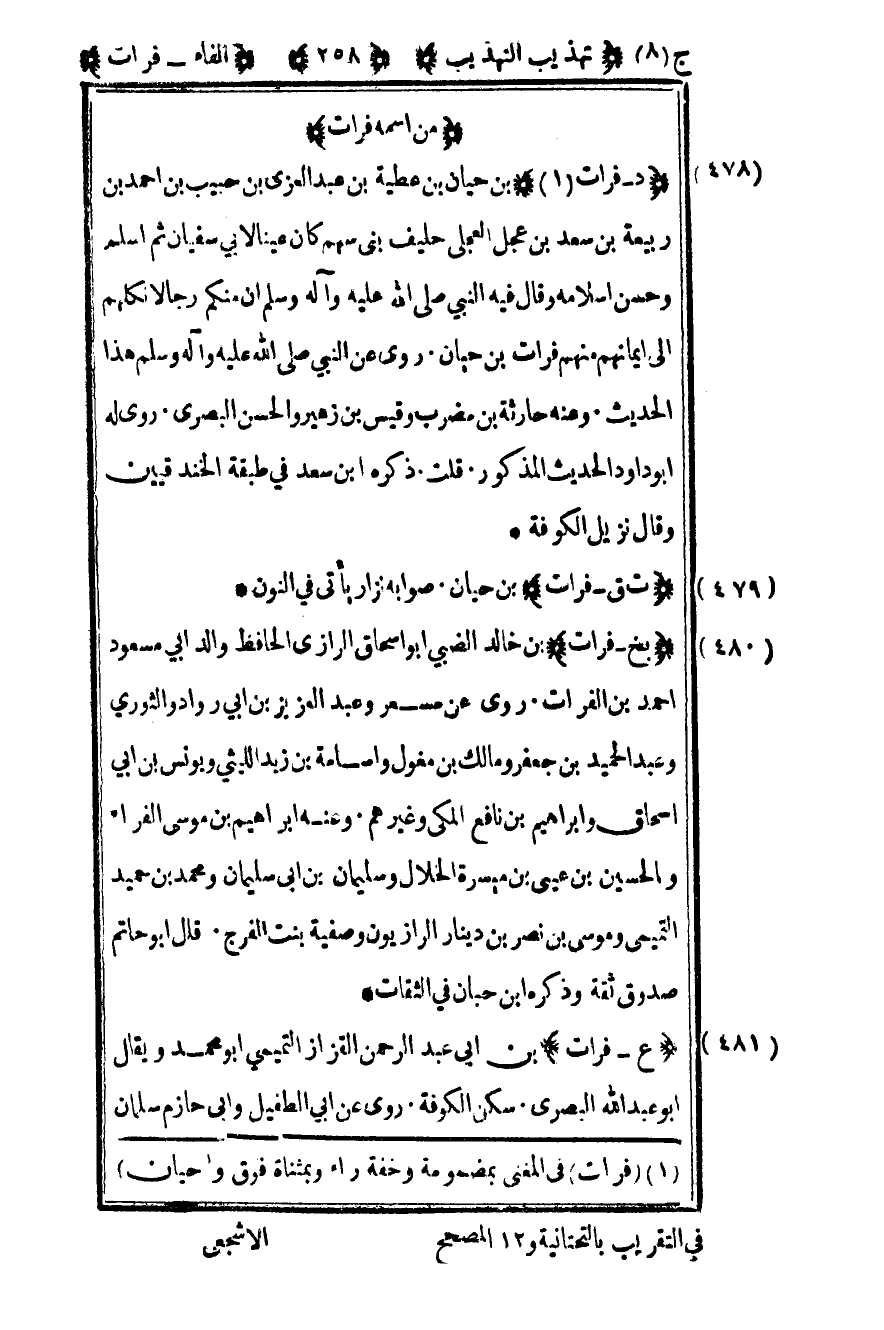 ج(٨) ﴿ تهذيب التهذيب ﴾ ﴿ ٢٥٨ ﴾ ﴿ الفاء ـ فرات ﴾
﴿ من اسمه فرات ﴾
(٤٧٨) ﴿ د ـ فرات (١) ﴾ بن حيان بن عطية بن عبدالعزى بن حبيب بن احمد بن
ربيعة بن سعد بن عجل العجلى حليف بنى سهم كان عينا لابي سفيان ثم اسلم
وحسن اسلامه وقال فيه النبي صلى الله عليه وآله وسلم ان منكم رجالا نكلهم
الى ايمانهم منهم فرات بن حيان · روى عن النبي صلى الله عليه وآله وسلم هذا
الحديث · وعنه حارثة بن مضرب وقيس بن زهير والحسن البصرى · روى له
ابوداود الحديث المذكور · قلت · ذكره ابن سعد في طبقة الخندقيين
وقال نزيل الكوفة *
(٤٧٩) ﴿ ت ق ـ فرات ﴾ بن حيان · صوابه نزار يأتى في النون *
(٤٨٠) ﴿ بخ ـ فرات ﴾ بن خالد الضبي ابو اسحاق الرازى الحافظ والد ابي مسعود
احمد بن الفرات · روى عن مسعر وعبد العزيز بن ابي رواد والثوري
وعبدالحميد بن جعفر ومالك بن مغول واسامة بن زيد الليثي ويونس بن ابي
اسحاق وابراهيم بن نافع المكى وغيرهم · وعنه ابراهيم بن موسى الفراء
والحسين بن عيسى بن ميسرة الخلال وسليمان بن ابى سليمان ومحمد بن حميد
التميمى وموسى بن نصر بن دينار الرازيون وصفية بنت الفرج · قال ابوحاتم
صدوق ثقة وذكره ابن حبان في الثقات *
(٤٨١) ﴿ ع ـ فرات ﴾ بن ابي عبد الرحمن القزاز التميمي ابو محمد ويقال
ابوعبدالله البصرى · سكن الكوفة · روى عن ابي الطفيل وابى حازم سلمان
(١) (فرات) فى المغنى بمضمومة وخفة راء وبمثناة فوق و(حيان)
في التقريب بالتحتانية و١٢ المصحح الاشجعى